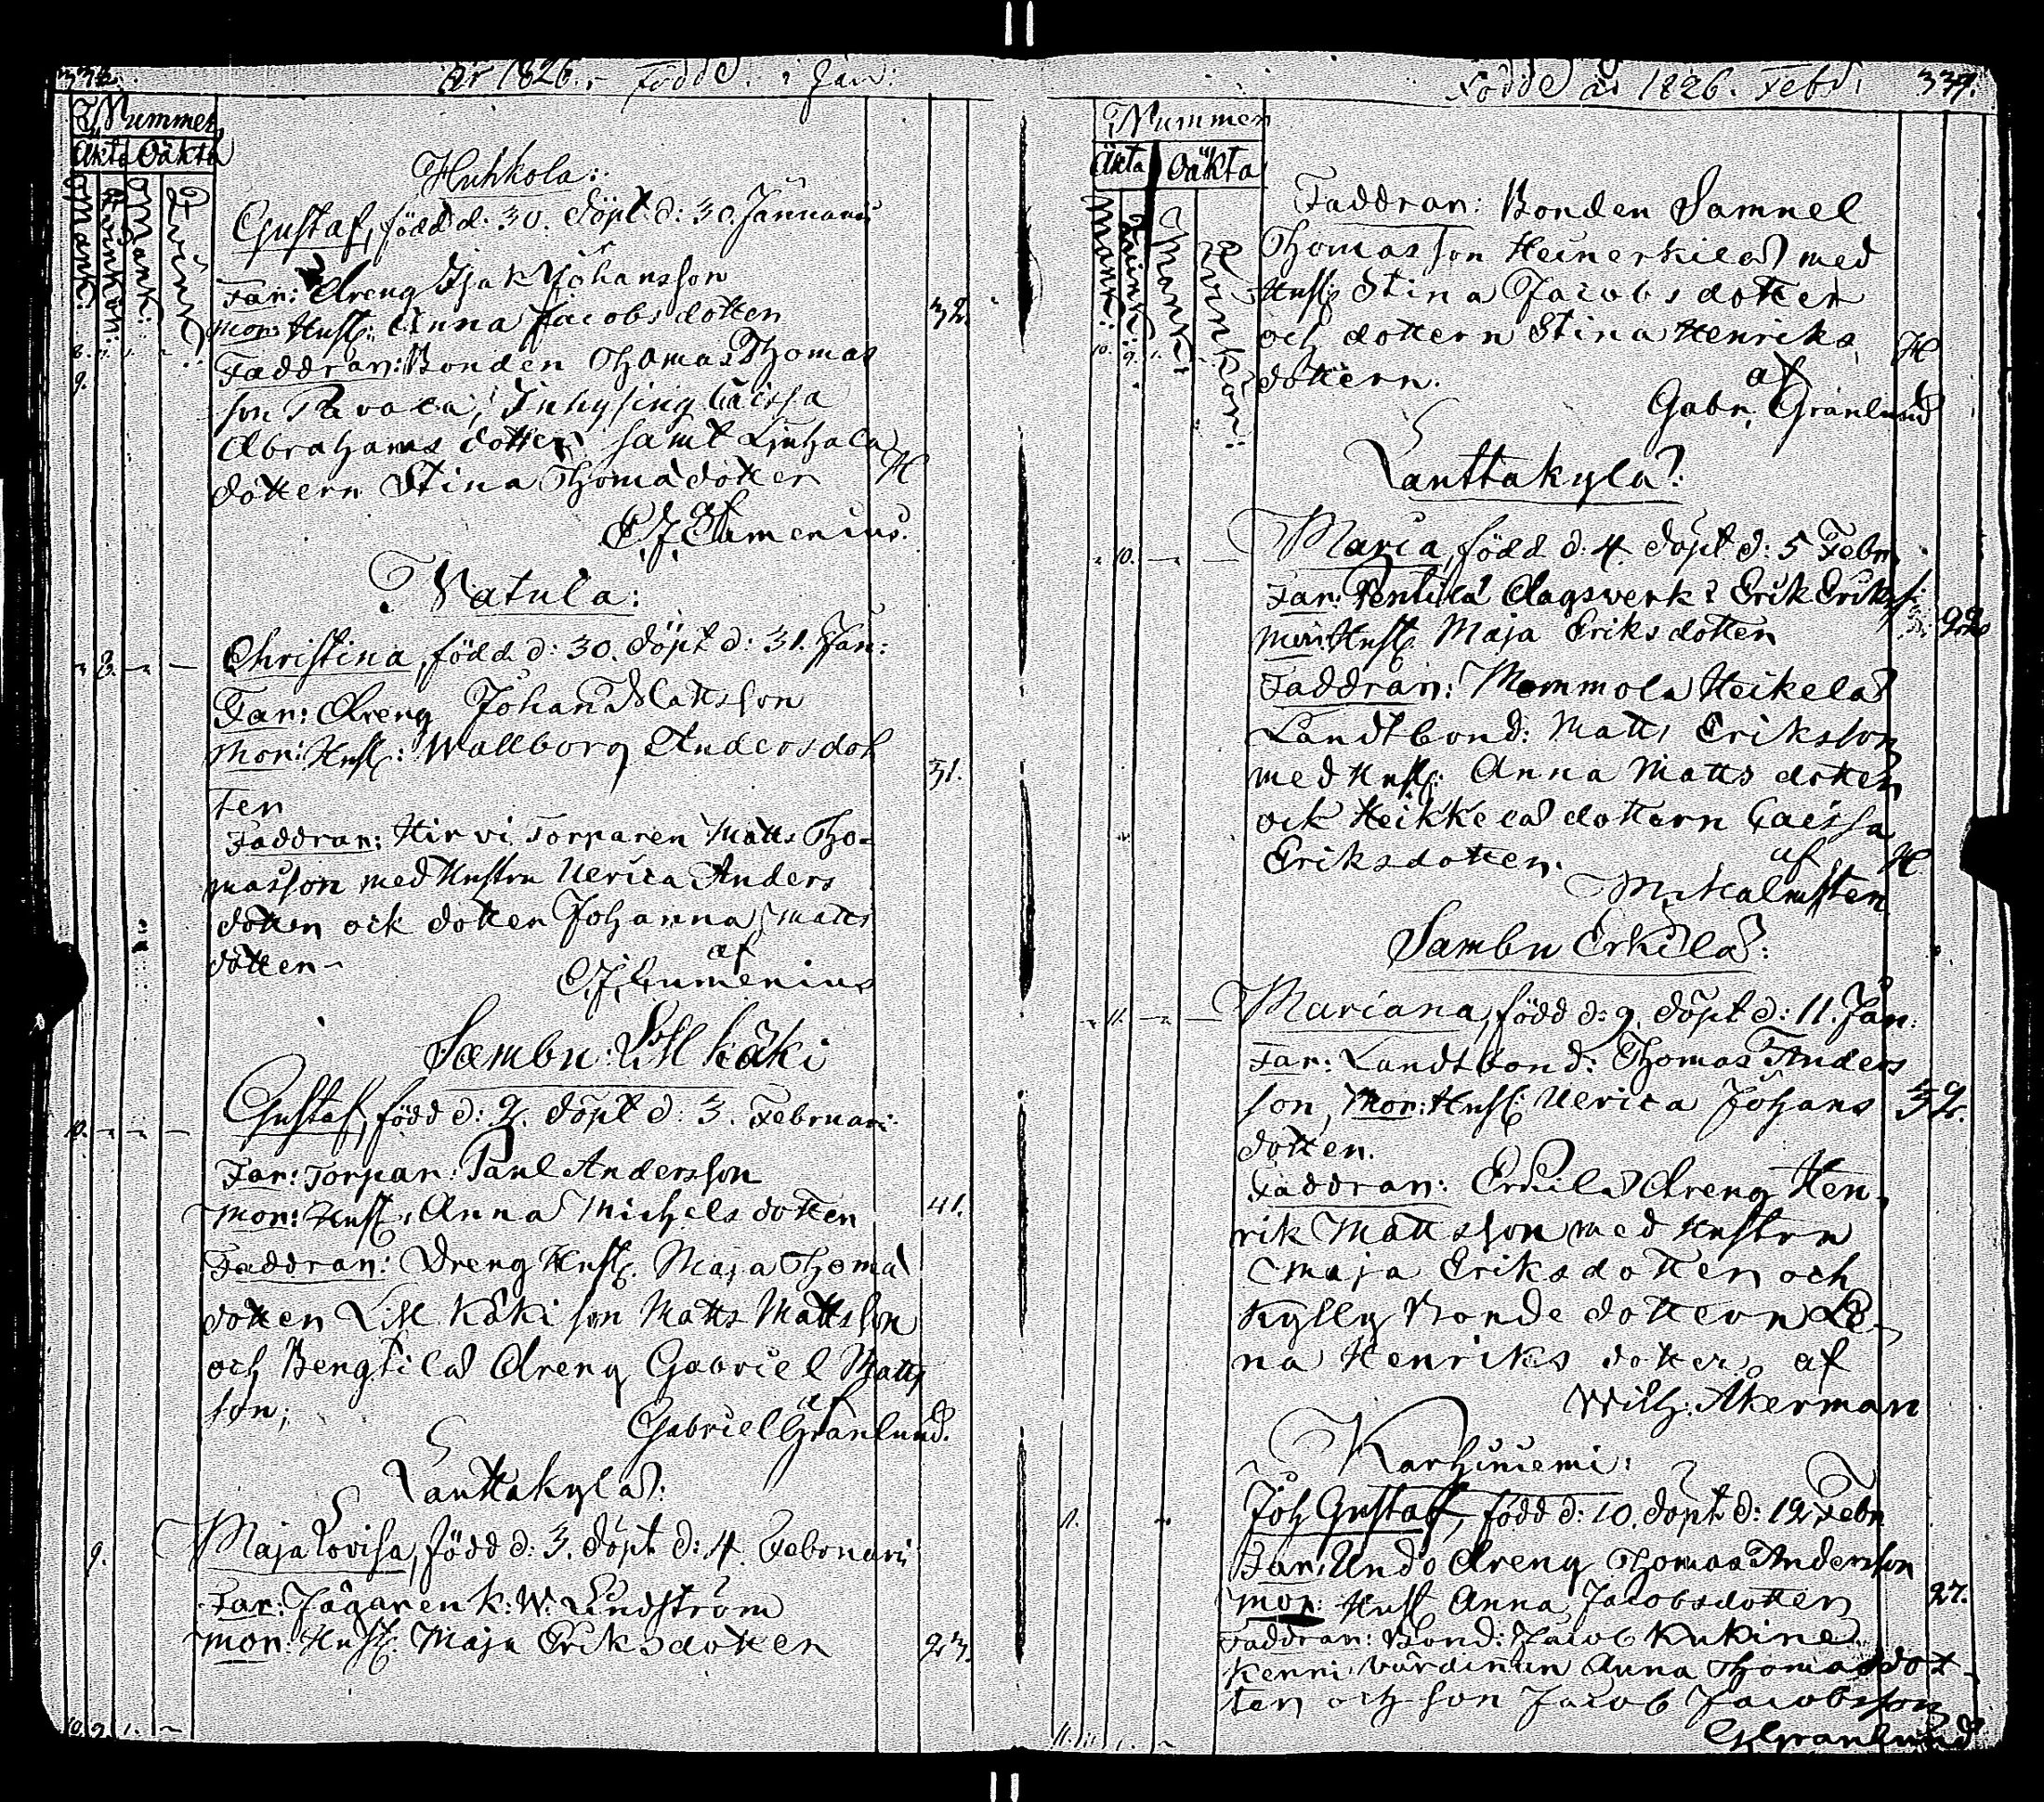 År 1826. Födde i Jan:
Nummer
Äkta Oäkta
Mank: Qvinkön: Mank: Qvink:
8.
Huhkola:
Gustaf, född d: 30. döpt d: 30. Januarii
Far: Dreng Isak Johansson
Mor: Hust: Anna Jacobsdotter
32.
9.
Faddrar: Bonden Thomas Thomas
son Pavola, Inhysing Caisa
Abrahams dotter samt
dottern Stina Thomadotter
af
C. J. Lumenius.
Vatula:
8. Christina, född d: 30. döpt d: 31. Jan:
Far: Dreng Johan Mattsson
Mor: Hust: Wallborg Andersdot
31.
ter
Faddrar: Hirvi Torparen Matts Tho-
masson med Hustru Ulrica Anders
dotter ock dotter Johanna Matts
dotter
af
C. J. Lumenius
Sambu: Lill käki
10. Gustaf, född d: 2. döpt d: 3. Februari:
Far: Torpar: Paul Andersson
Mor: Hust: Anna Michelsdotter
41.
Faddrar: Dreng Hust: Maja Thoma
dotter Lill Käki son Matts Mattsson
och Bengtilä Dreng Gabriel Matts
son;
af
Gabriel Granlund.
Lauttakylä:
9. Maja Lovisa, född d: 3. döpt d: 4. Februarii
Far: Jägaren K: W: Lindström
Mor: Hust: Maja Eriksdotter
23.
10. 9. 1.
Födde år 1826. Febr: 337.
Nummer
Äkta Oäkta
Mank: Qvinkön: Mank: Qvinkön:
10. 9. 1.
Faddrar: Bonden Samuel
Thomasson Heinerkilä med
Hust: Stina Jacobsdotter
och dottern Stina Henriks
dottern.
af
Gabr. Granlund
Lauttakylä:
10. Maria, född d: 4. döpt d: 5 Febr.
Far: Pentilä Dagsverk: Erik Eriks:
Mor: Hust: Maja Eriksdotter
22
Faddrar: Mommola Heikelä
Landtbond: Matts Eriksson
med Hust: Anna Matts dotter
ock Heikkelä dottern Caisa
Eriksdotter.
af
M. Kalmsten
Sambu Erkilä:
11. Mariana, född d: 9. döpt d: 11. Jan:
Far: Landtbond: Thomas Anders
son, Mor: Hust: Ulrica Johans
32.
dotter.
Faddrar: Erkilä Dreng Hen-
rik Mattsson med Hustru
Maja Eriksdotter och
Kylly Bonde dottern Le-
na Henriks dotter, af
Wilh: Åkerman
Karhiniemi:
11. Joh Gustaf, född d: 10. döpt d: 12 Febr
Far: Undo Dreng Thomas Andersson
Mor: Hust Anna Jacobsdotter
27.
Faddrar: Bond: Jacob Kukine
Kenni värdinnan Anna Thomasdot-
ter och son Jacob Jacobsson
G Granlund
11. 11. 1.